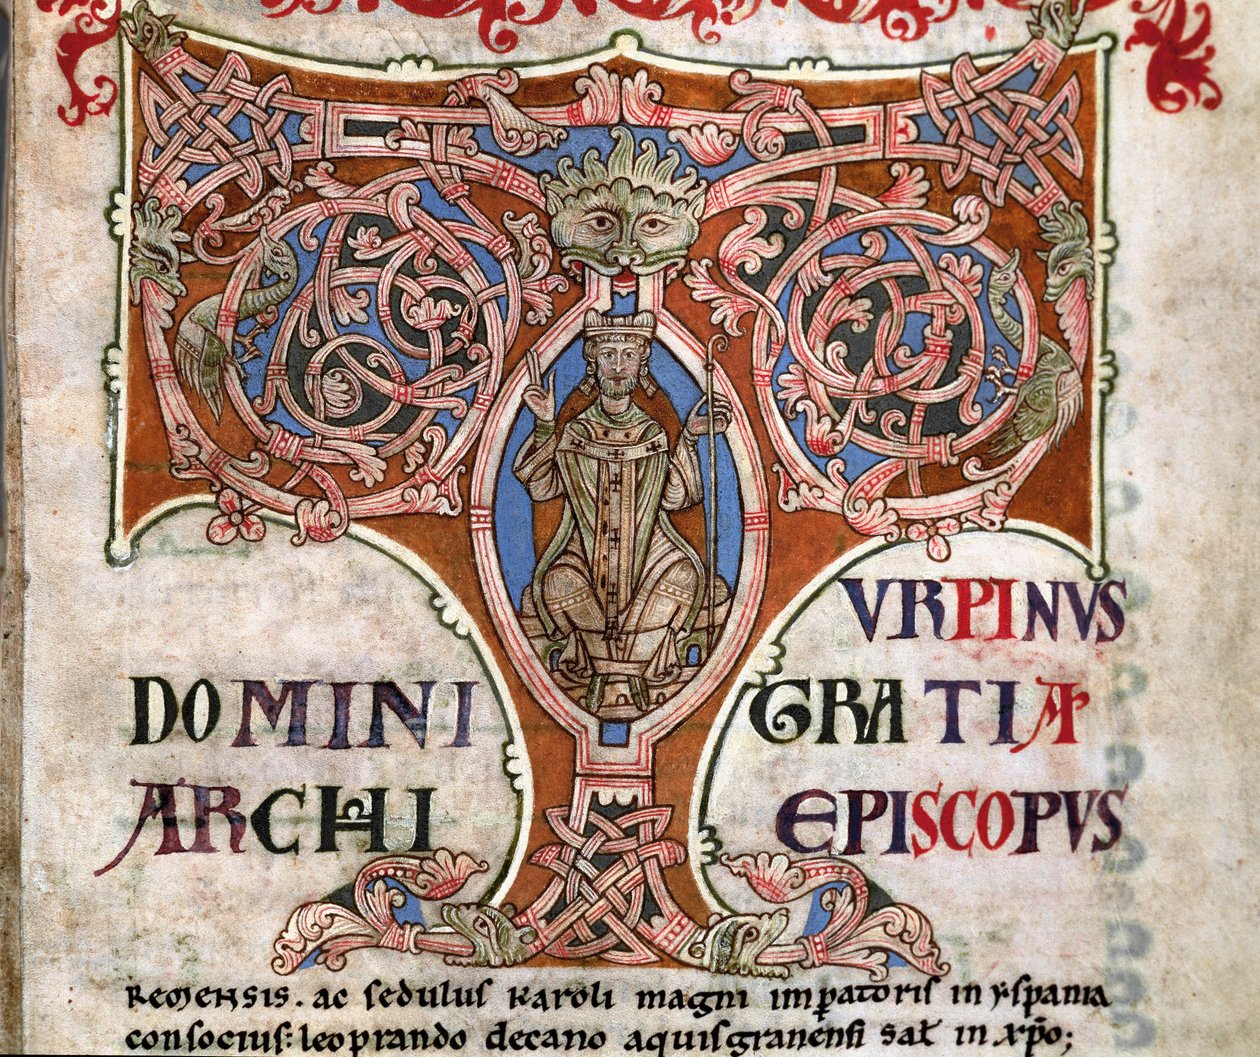 TVRPINVS
DOMINI GRATIA
ARCHI EPISCOPVS
REMENSIS. ac sedulus karoli magni imꝑatoris in yspania
consocius: leoprando decano aquisgranensi sał in xp̄o;